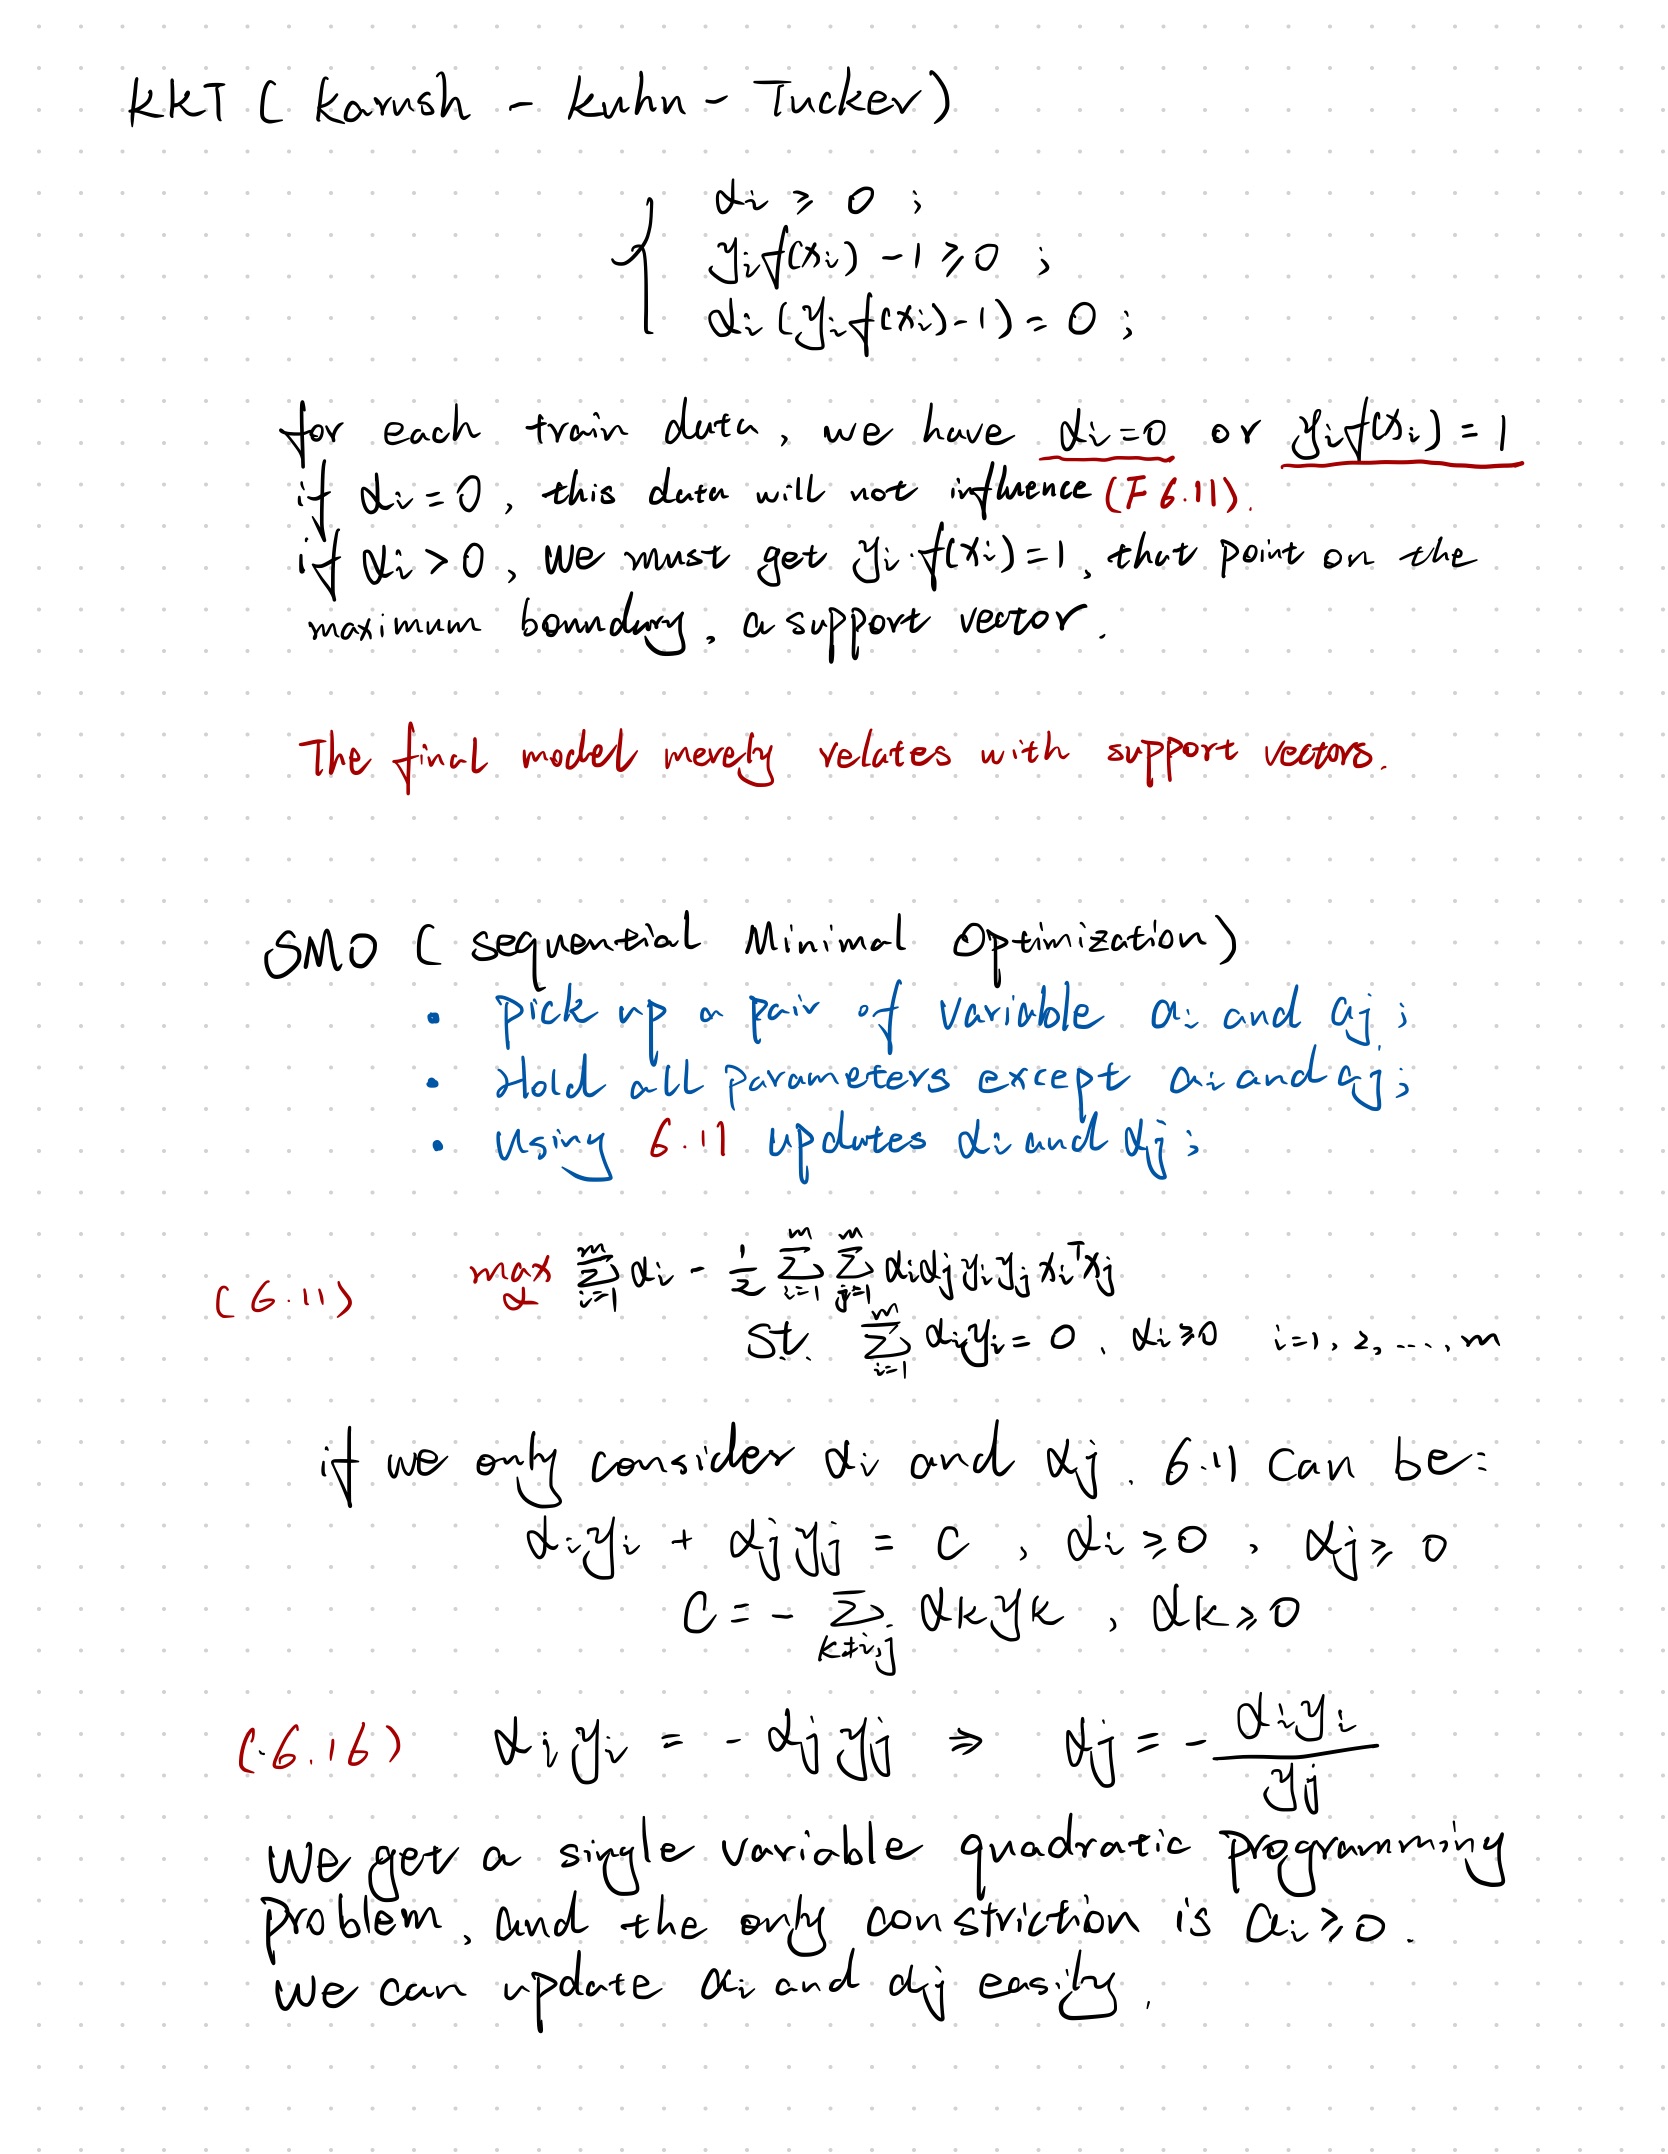 KKT ( Karush - Kuhn - Tucker )
αi ≥ 0 ;
yif(xi) - 1 ≥ 0 ;
αi (yif(xi) - 1) = 0 ;
for each train data, we have αi=0 or yif(xi) = 1
if αi = 0, this data will not influence (F 6.11).
if αi > 0, we must get yi·f(xi) = 1, that point on the
maximum boundary, a support vector.
The final model merely relates with support vectors.
SMO ( sequential Minimal Optimization )
• pick up a pair of variable ai and aj ;
• Hold all parameters except ai and aj ;
• using 6.11 updates αi and αj ;
(6.11) max_α ∑_{i=1}^m αi - 1/2 ∑_{i=1}^m ∑_{j=1}^m αiαjyiyj xi^T xj
st. ∑_{i=1}^m αiyi = 0, αi ≥ 0 i=1, 2, ..., m
if we only consider αi and αj. 6.11 can be:
αiyi + αjyj = C , αi ≥ 0 , αj ≥ 0
C = - ∑_{k≠i,j} αkyk , αk ≥ 0
(6.16) αiyi = - αjyj ⇒ αj = - αiyi / yj
we get a single variable quadratic programming
problem, and the only constriction is ai ≥ 0.
we can update αi and αj easily.